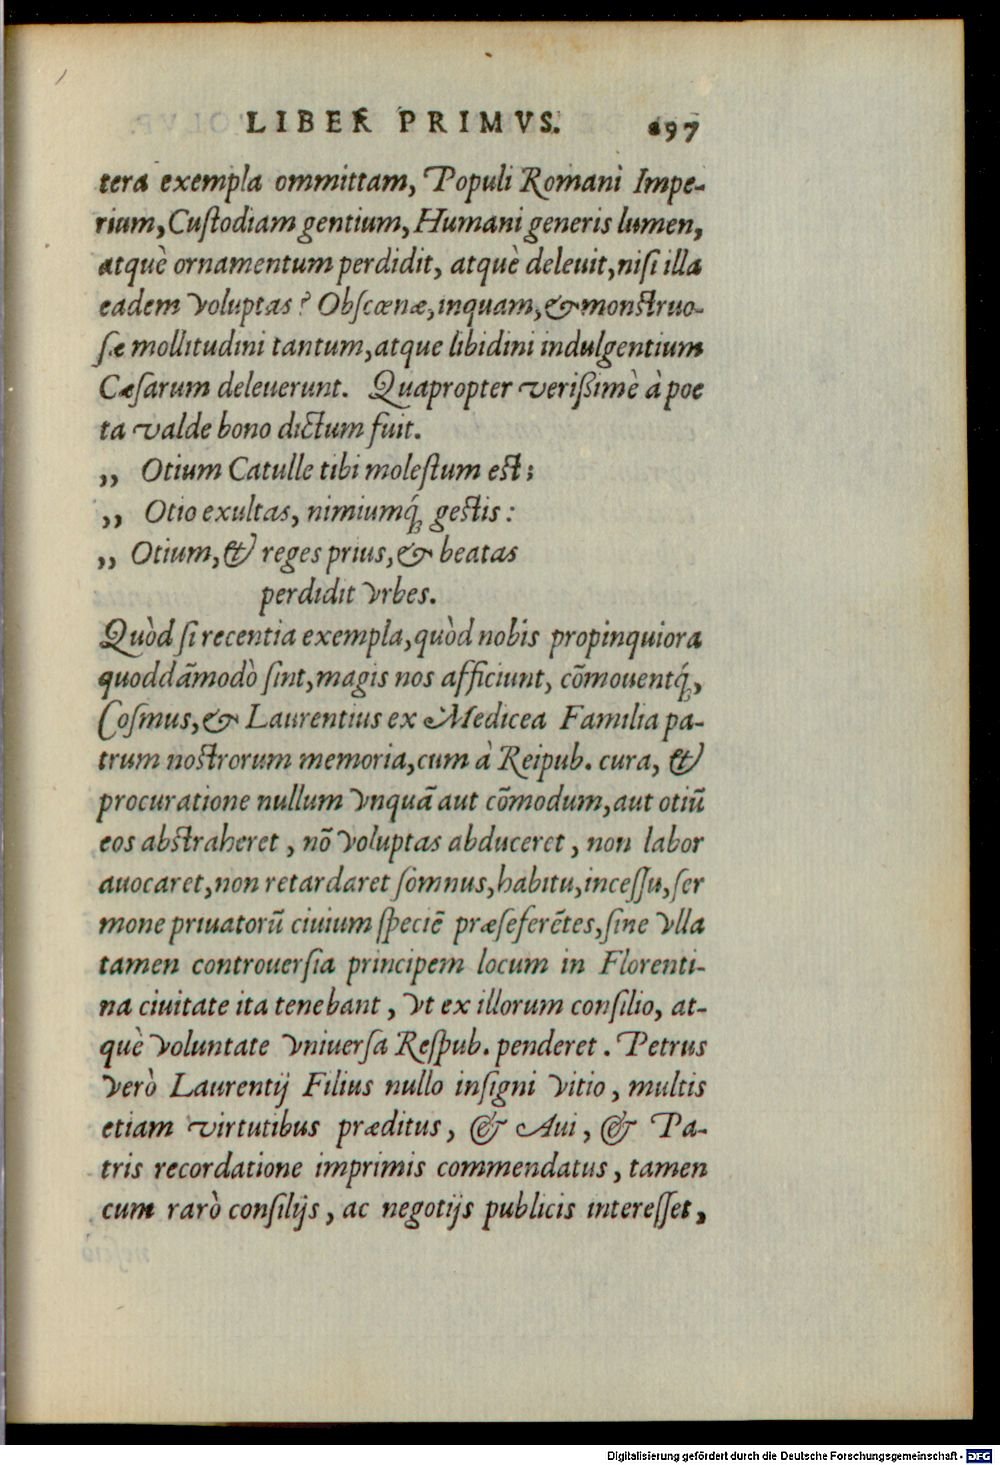 LIBER PRIMVS. 197
tera exempla ommittam, Populi Romani Impe-
rium, Cuſtodiam gentium, Humani generis lumen,
atquè ornamentum perdidit, atquè deleuit, niſi illa
eadem voluptas? Obſcœnæ, inquam, & monſtruo-
ſæ mollitudini tantum, atque libidini indulgentium
Cæſarum deleuerunt. Quapropter verißimè à poe
ta valde bono dictum fuit.
„ Otium Catulle tibi moleſtum eſt;
„ Otio exultas, nimiumq́; geſtis:
„ Otium, & reges prius, & beatas
perdidit vrbes.
Quòd ſi recentia exempla, quòd nobis propinquiora
quoddãmodò ſint, magis nos afficiunt, cõmouentq́;,
Coſmus, & Laurentius ex Medicea Familia pa-
trum noſtrorum memoria, cum à Reipub. cura, &
procuratione nullum vnquã aut cõmodum, aut otiũ
eos abſtraheret, nõ voluptas abduceret, non labor
auocaret, non retardaret ſomnus, habitu, inceſſu, ſer
mone priuatorũ ciuium ſpeciẽ præſeferẽtes, ſine vlla
tamen controuerſia principem locum in Florenti-
na ciuitate ita tenebant, vt ex illorum conſilio, at-
què voluntate vniuerſa Reſpub. penderet. Petrus
verò Laurentij Filius nullo inſigni vitio, multis
etiam virtutibus præditus, & Aui, & Pa-
tris recordatione imprimis commendatus, tamen
cum rarò conſilijs, ac negotijs publicis intereſſet,
Digitalisierung gefördert durch die Deutsche Forschungsgemeinschaft - DFG